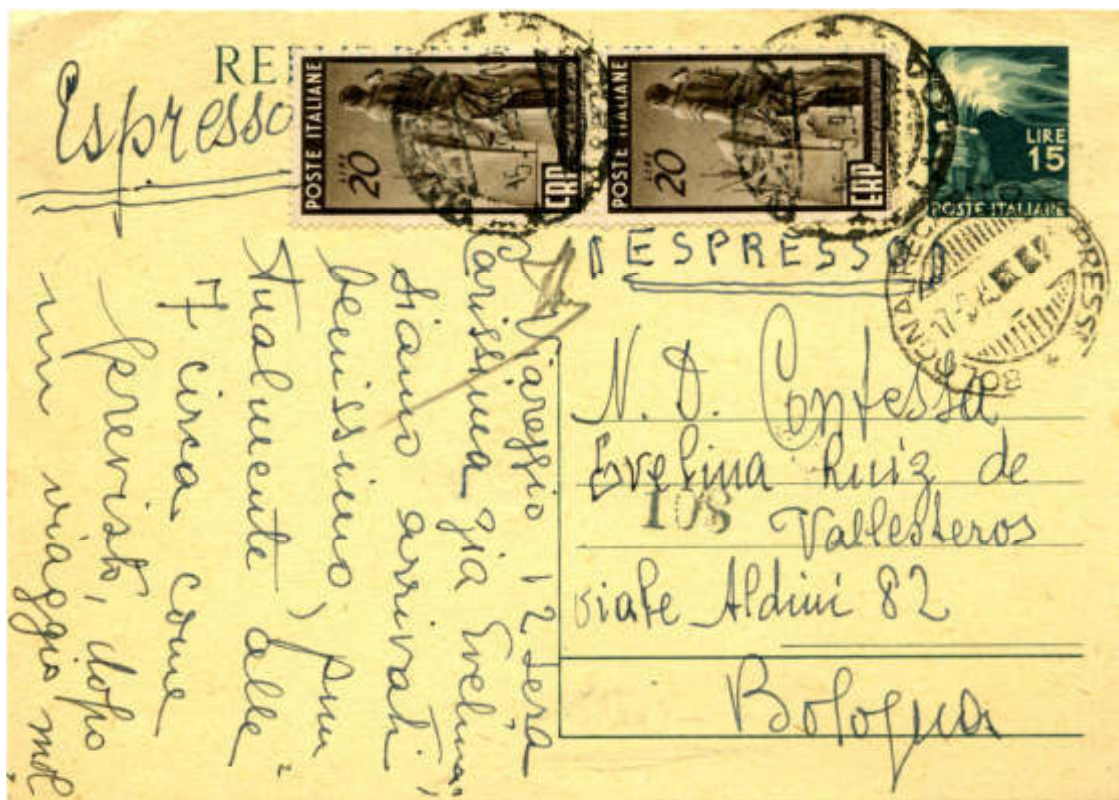 RE
Espresso
POSTE ITALIANE
LIRE
20
ERP
POSTE ITALIANE
LIRE
20
ERP
LIRE
15
POSTE ITALIANE
ESPRESSO
BOLOGNA
N. D. Contessa
Evelina Ruiz de
Vallesteros
108
viale Aldini 82
Bologna
Viareggio 12 sera
Carissima gia Evelina,
siamo arrivati
benissimo,
alle
7 circa come
previsto, dopo
un viaggio mol